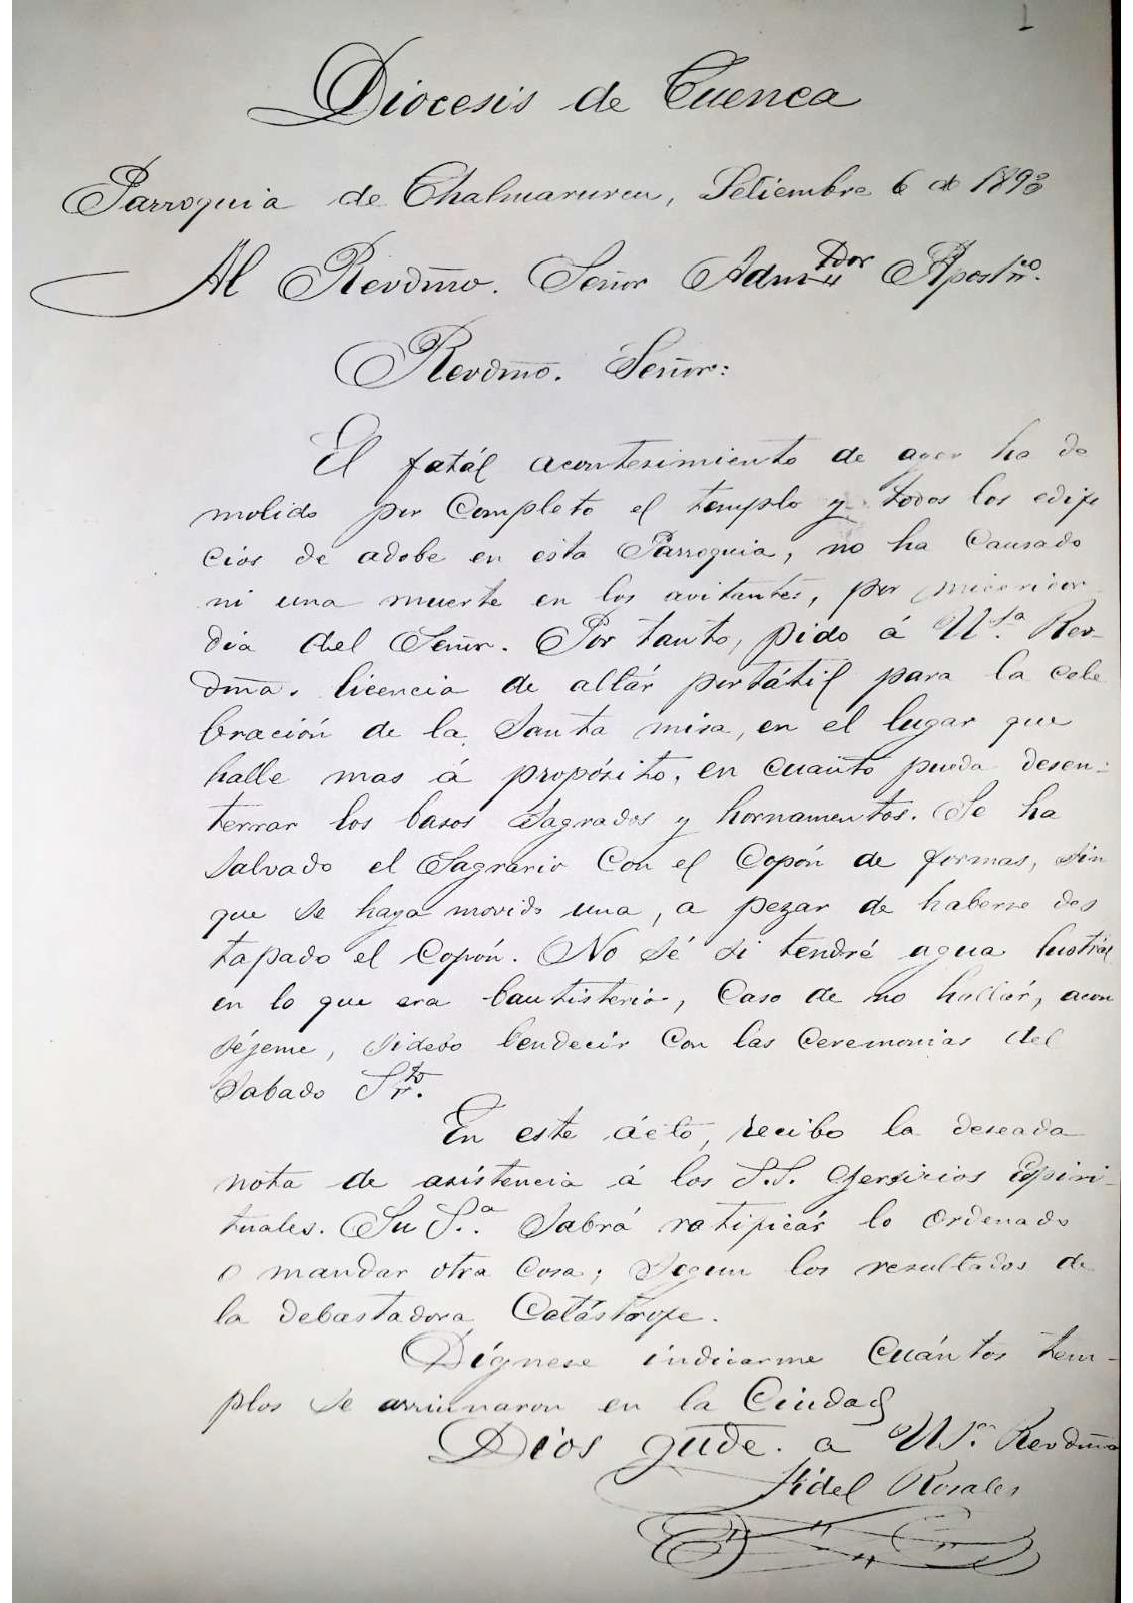 1
Diocesis de Cuenca
Parroquia de Chalhuarurcu, Setiembre 6 de 1890
Al Revdmo. Señor Admdor Apostco.
Revdmo. Señor:
El fatál acontesimiento de ayer ha de
molido por Completo el templo y todos los edifi
cios de adobe en esta Parroquia, no ha Causado
ni una muerte en los avitantes, por micericor
dia del Señor. Por tanto, pido á U.Sa. Rev-
dma. licencia de altár portátil para la cele
bración de la Santa misa, en el lugar que
halle mas á propósito, en cuanto pueda desen-
terrar los basos Sagrados y hornamentos. Se ha
salvado el Sagrario Con el Copón de formas, sin
que se haya movido una, a pezar de haberse des
tapado el Copón. No sé si tendré agua lustrál
en lo que era bautisterio, Caso de no hallar, acon
séjeme, sidebo bendecir Con las Ceremonias del
Sabado Sto.
En este ácto, recibo la deseada
nota de asistencia á los S.S. Ejersicios Espiri-
tuales. Su S.a Sabrá ratipicár lo ordenado
o mandar otra Cosa; Segun los resultados de
la debastadora Catástrofe.
Dígnese indicarme Cuántos tem-
plos se arruinaron en la Ciudad
Dios gude. a U.Sa. Revdma
Fidel Rosales